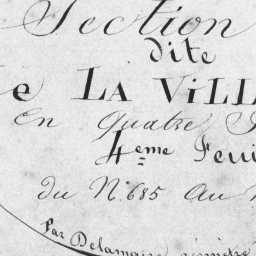 Section
dite
LA VILL
En Quatre
4eme Feui
du N° 685 au
Par Delamaire géomètre